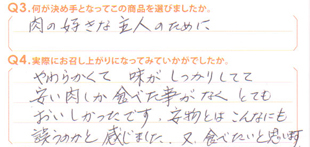 Q3.何が決め手となってこの商品を選びましたか。
肉の好きな主人のために
Q4.実際にお召し上がりになってみていかがでしたか。
やわらかくて 味がしっかりしてて
安い肉しか食べた事がなく とても
おいしかったです。安物とはこんなにも
違うのかと感じました。又、食べたいと思います